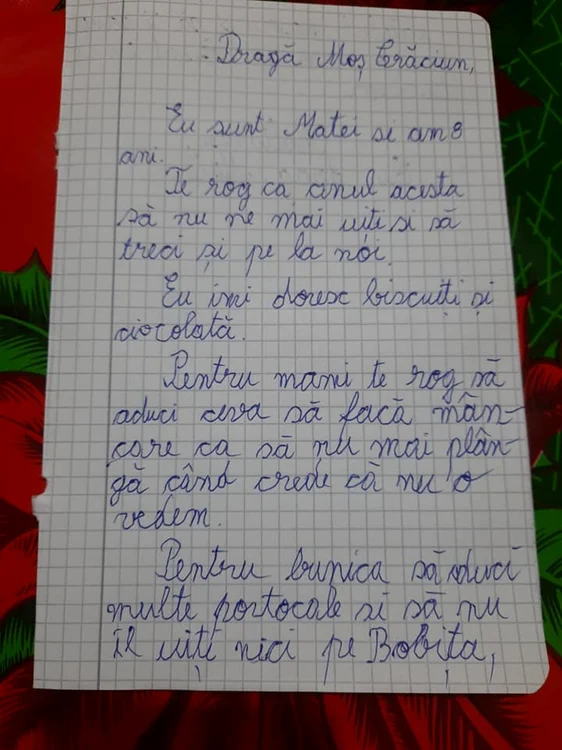 Dragă Moș Crăciun,
Eu sunt Matei si am 8
ani.
Te rog ca anul acesta
să nu ne mai uiți si să
treci și pe la noi.
Eu imi doresc biscuiți și
ciocolată.
Pentru mami te rog să
aduci ceva să facă mân-
care ca să nu mai plân-
gă când crede că nu o
vedem.
Pentru bunica să aduci
multe portocale si să nu
il uiți nici pe Bobița,